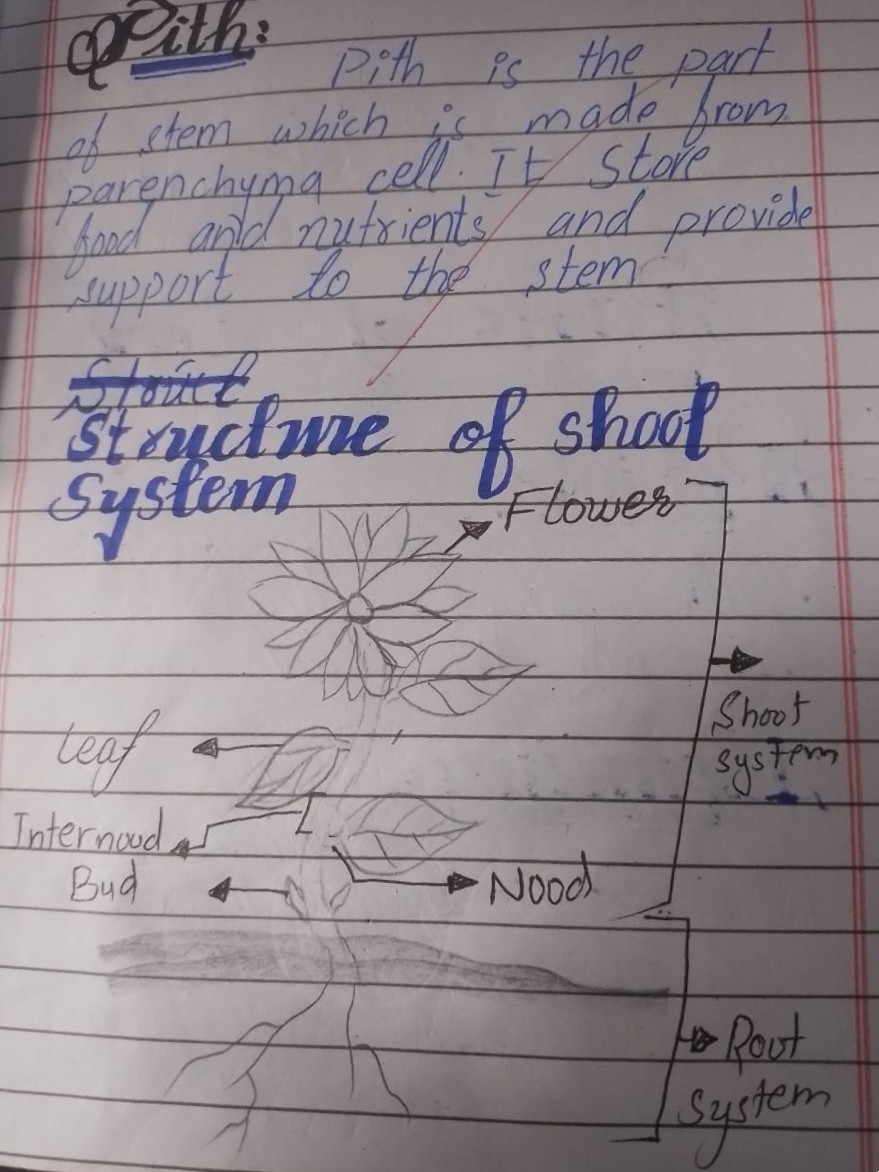 Pith:
Pith is the part
of stem which is made from
parenchyma cell. It store
food and nutrients and provide
support to the stem
Struct
Structure of shoot
System
Flower
Shoot
system
Leaf
Internoud
Bud
Nood
Root
system